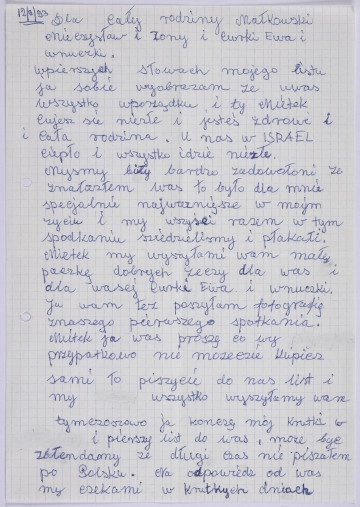 12/8/93 Dla Cały rodziny Małkowski
Mieczysław i Żony i Curki Ewa i
wnuczki.
Wpierszych słowach mojego listu
ja sobie wyobrazam ze uwas
wszystko wporządku i ty Mietek
czujesz sie nieźle i jesteś zdrowi i
i Cała rodzina. U nas w ISRAEL
ciepło i wszystko idzie nieźle.
Mysmy były bardzo zadowoloni ze
znalazłem was to było dla mnie
specjalnie najwazniejsze w mojm
zyciu i my wszysci razem w tym
spodkaniu siedzielismy i płakali.
Mietek my wysyłami wam mały
paczkę dobrych zeczy dla was i
dla wasej curki Ewa i wnuczki.
Ja wam też poszyłam fofografię
znaszego pieraszego spotkania.
Mietek ja was proszę co wy
przypatkowo nie możecie kupiesz
sami to piszycie do nas list i
my wszystko wyszyłamy wam
tymczasowo ja konczę mój krutki
i pierszy list do was, może być
ze długi czas nie pisałem
po Polsku. Na odpowiedz od was
my czekami w krutkych dniach